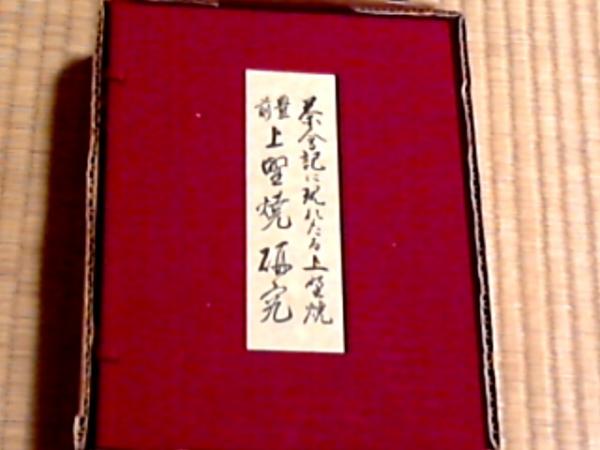 茶会記に現れたる上野焼
豊前 上野焼研究